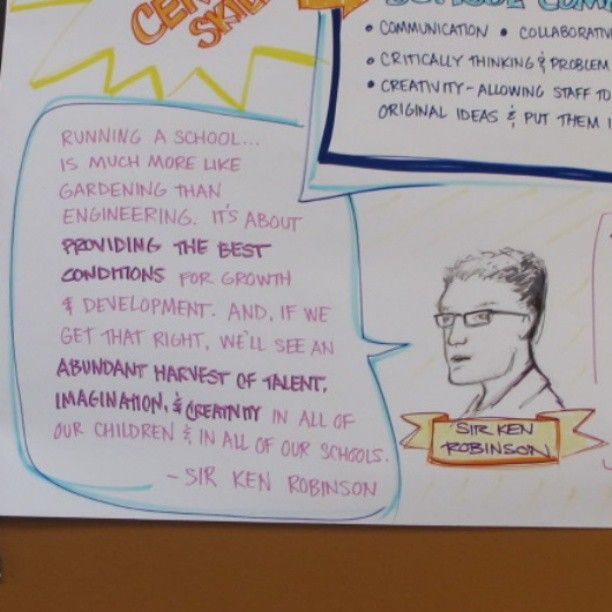 COMMUNICATION • COLLABORATIV
• CRITICALLY THINKING & PROBLEM
• CREATIVITY - ALLOWING STAFF TO
ORIGINAL IDEAS & PUT THEM I
RUNNING A SCHOOL...
IS MUCH MORE LIKE
GARDENING THAN
ENGINEERING. IT'S ABOUT
PROVIDING THE BEST
CONDITIONS FOR GROWTH
& DEVELOPMENT. AND, IF WE
GET THAT RIGHT, WE'LL SEE AN
ABUNDANT HARVEST OF TALENT,
IMAGINATION, & CREATIVITY IN ALL OF
OUR CHILDREN & IN ALL OF OUR SCHOOLS.
- SIR KEN ROBINSON
SIR KEN
ROBINSON